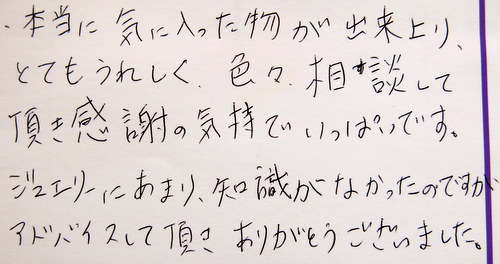 ・本当に気に入った物が出来上り、
とてもうれしく、色々、相談して
頂き感謝の気持でいっぱいです。
ジュエリーにあまり、知識がなかったのですが
アドバイスして頂きありがとうございました。